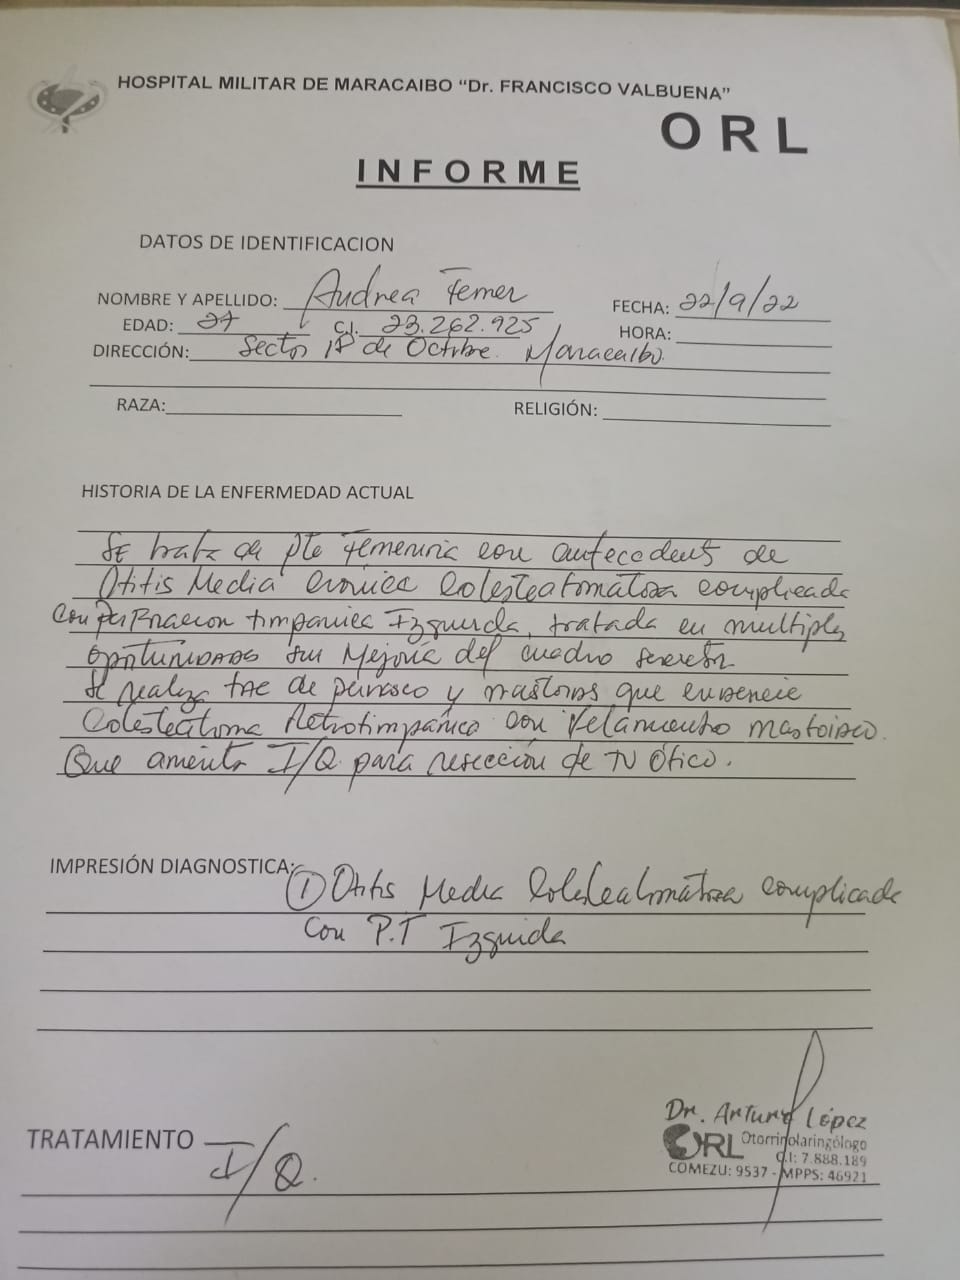 HOSPITAL MILITAR DE MARACAIBO “Dr. FRANCISCO VALBUENA”
ORL
INFORME
DATOS DE IDENTIFICACION
NOMBRE Y APELLIDO: Andrea Femer FECHA: 22/9/22
EDAD: 27 C.I. 23.262.925 HORA:
DIRECCIÓN: Sector 18 de Octubre. Maracaibo.
RAZA: RELIGIÓN:
HISTORIA DE LA ENFERMEDAD ACTUAL
SE trata de pte femenina con antecedents de
Otitis Media cronica Colesteatomatosa complicada
con perforacion timpanica Izquierda, tratada en multiples
oportunidades sin Mejoria del cuadro
Se realiza TAC de peñasco y mastoides que evidencie
Colesteatoma Retrotimpánico con Velamiento mastoideo.
Que amerita I/Q para resección de TU Ótico.
IMPRESIÓN DIAGNOSTICA: ① Otitis Media Colesteatomatosa complicada
con P.T Izquierda
TRATAMIENTO I/Q.
Dr. Arturo López
ORL Otorrinolaringólogo
C.I: 7.888.189
COMEZU: 9537 - MPPS: 46921